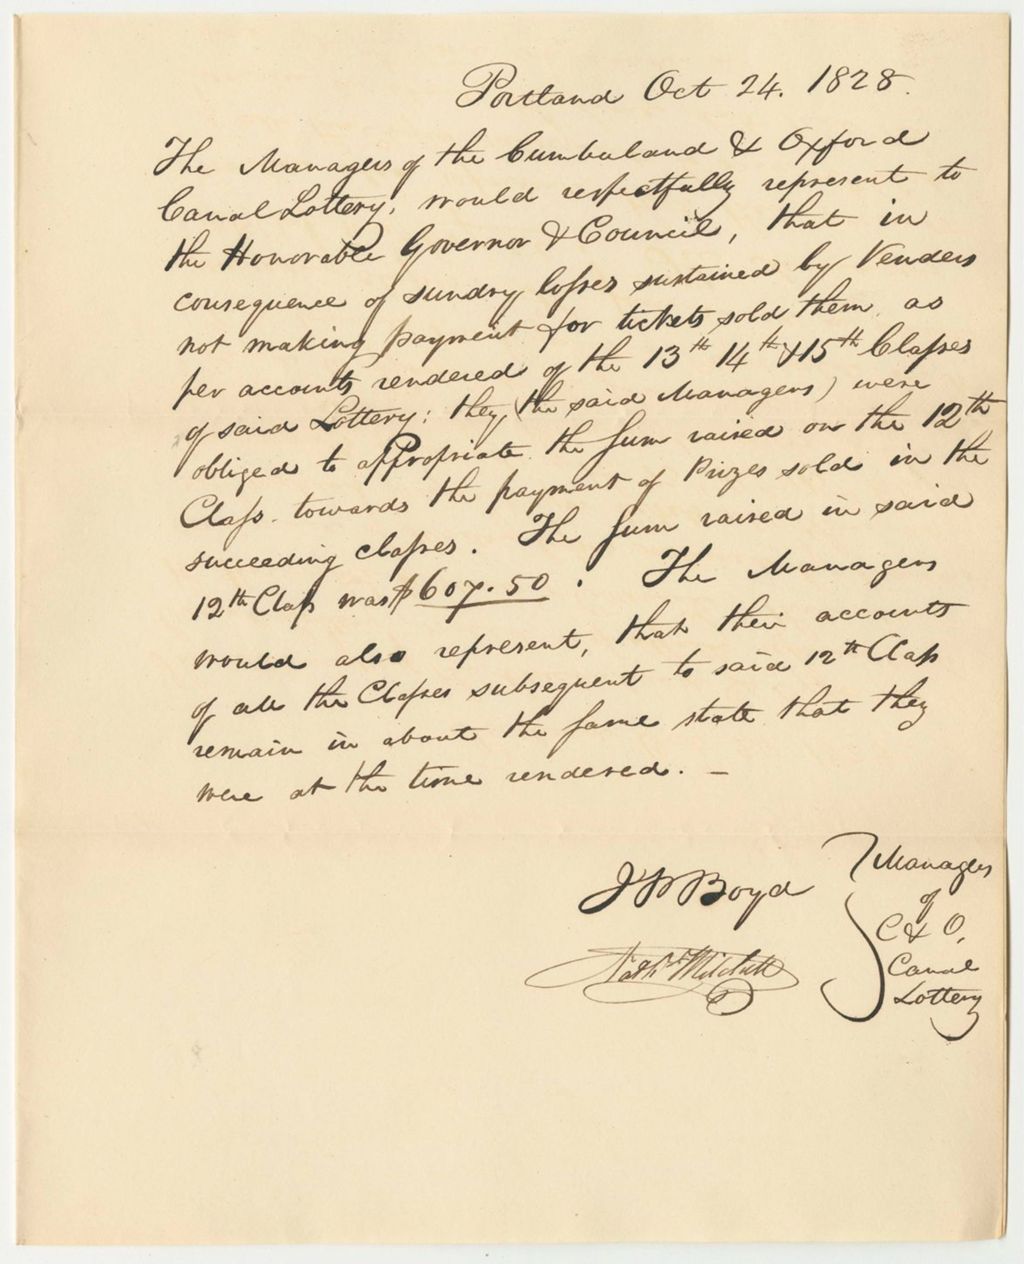 Portland Oct 24. 1828.
The Managers of the Cumberland & Oxford
Canal Lottery, would respectfully represent to
the Honorable Governor & Council, that in
consequence of sundry losses sustained by Venders
not making payment for tickets sold them, as
per accounts rendered of the 13th 14th & 15th Classes
of said Lottery; they (the said Managers) were
obliged to appropriate the sum raised on the 12th
Class towards the payment of Prizes sold in the
succeeding classes. The sum raised in said
12th Class was $607.50. The Managers
would also represent, that their accounts
of all the Classes subsequent to said 12th Class
remain in about the same state that they
were at the time rendered. —
J W Boyd
Nathl Mitchell
Managers
of
C & O.
Canal
Lottery